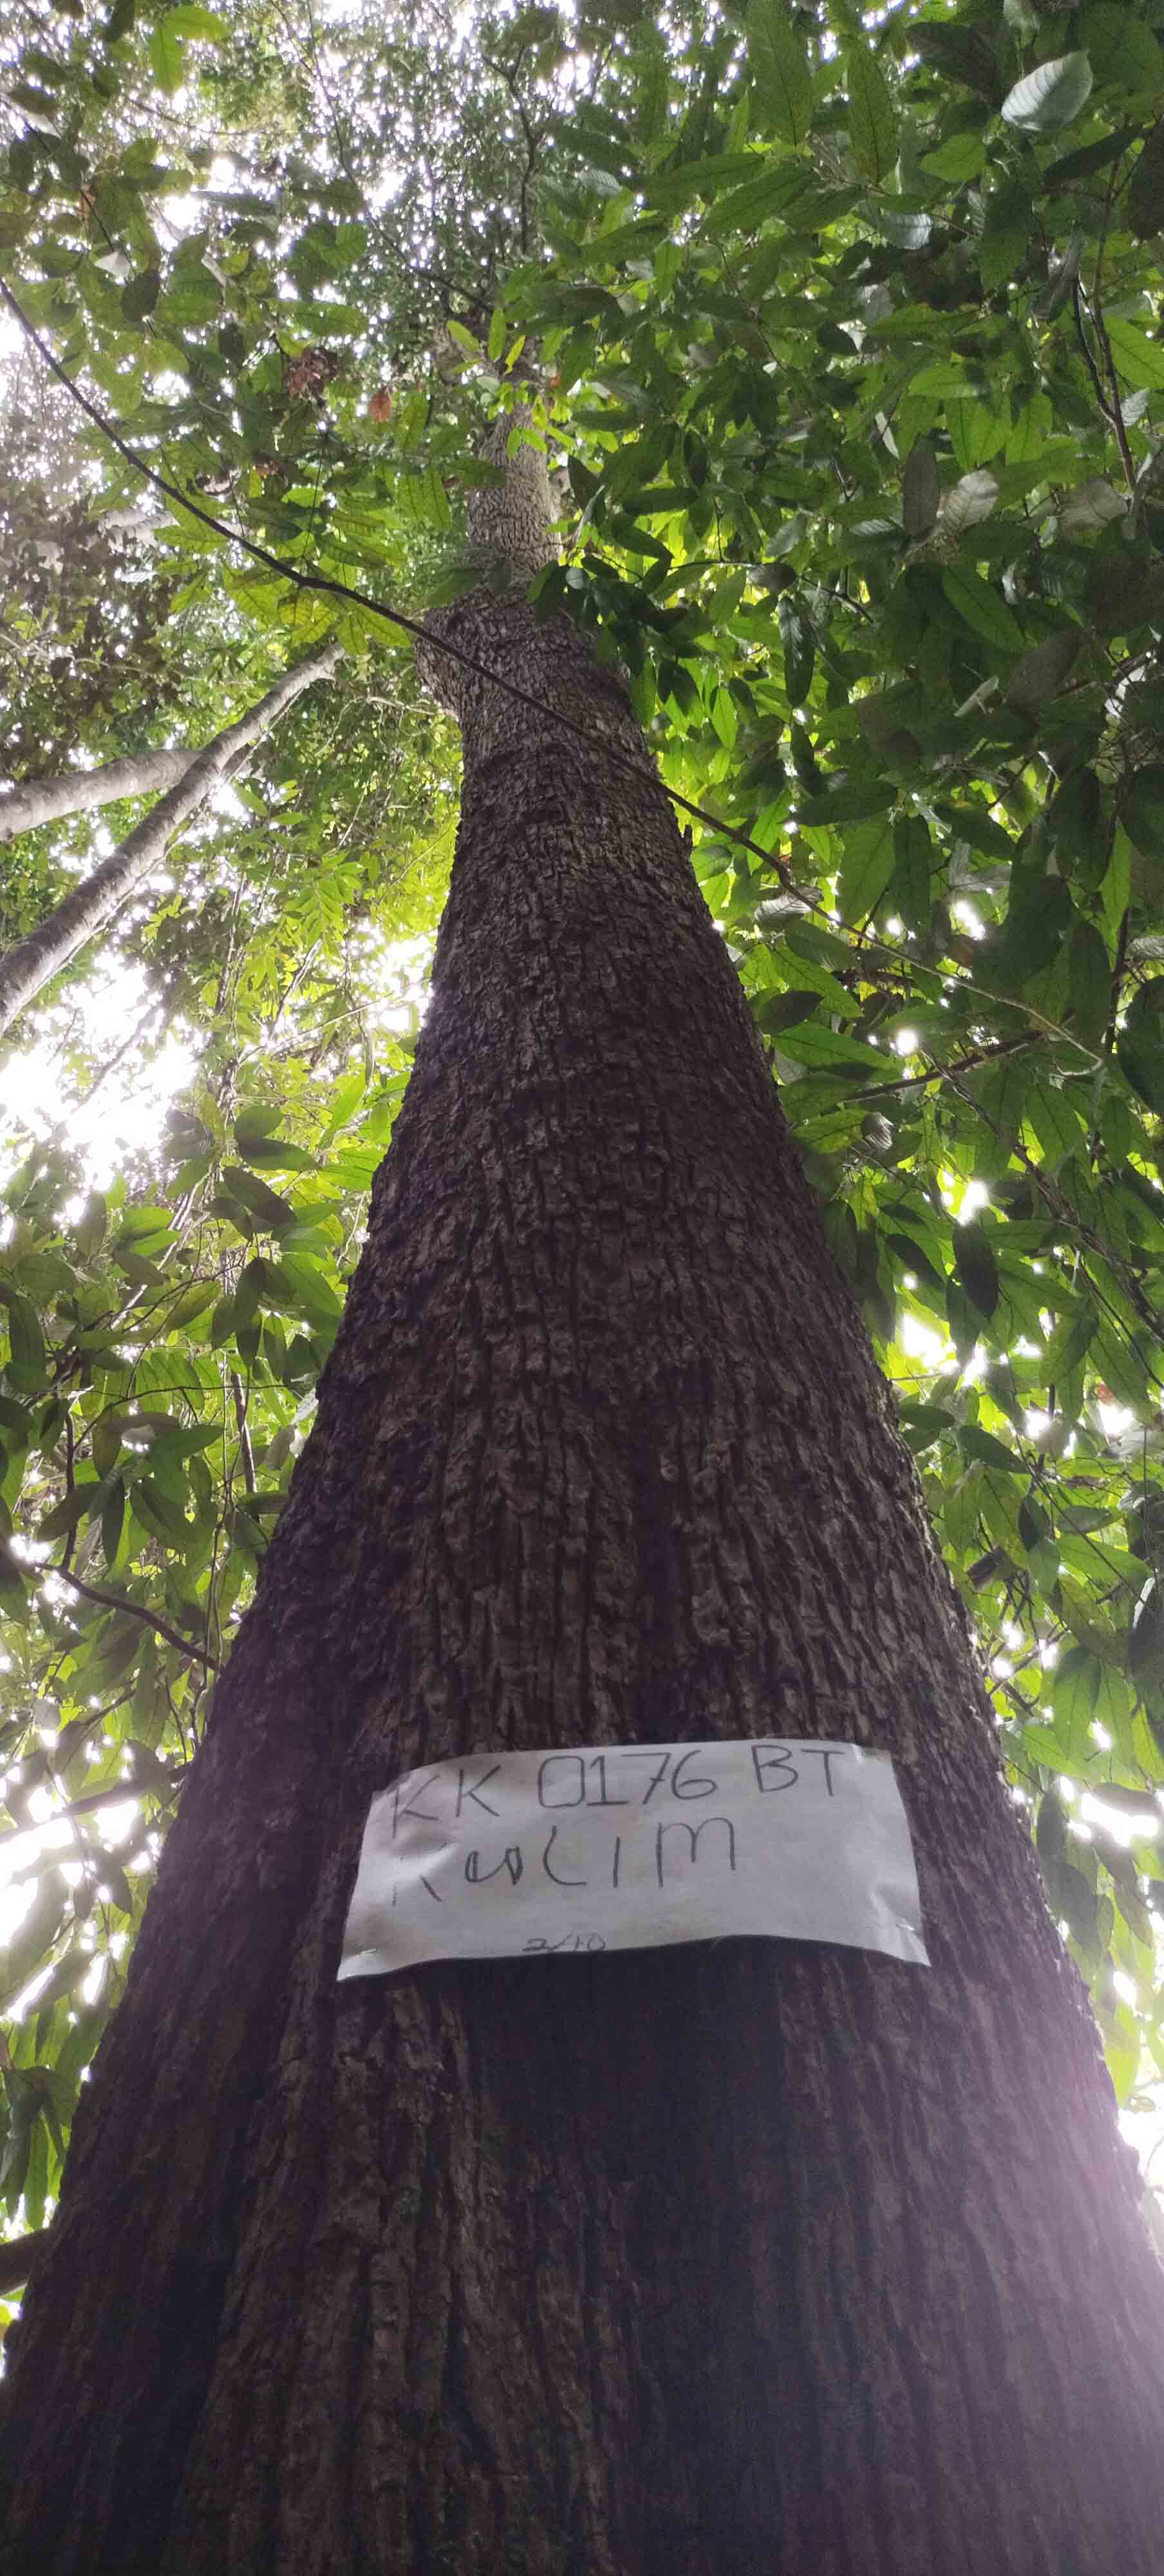 KK 0176 BT
KULIM
2/10